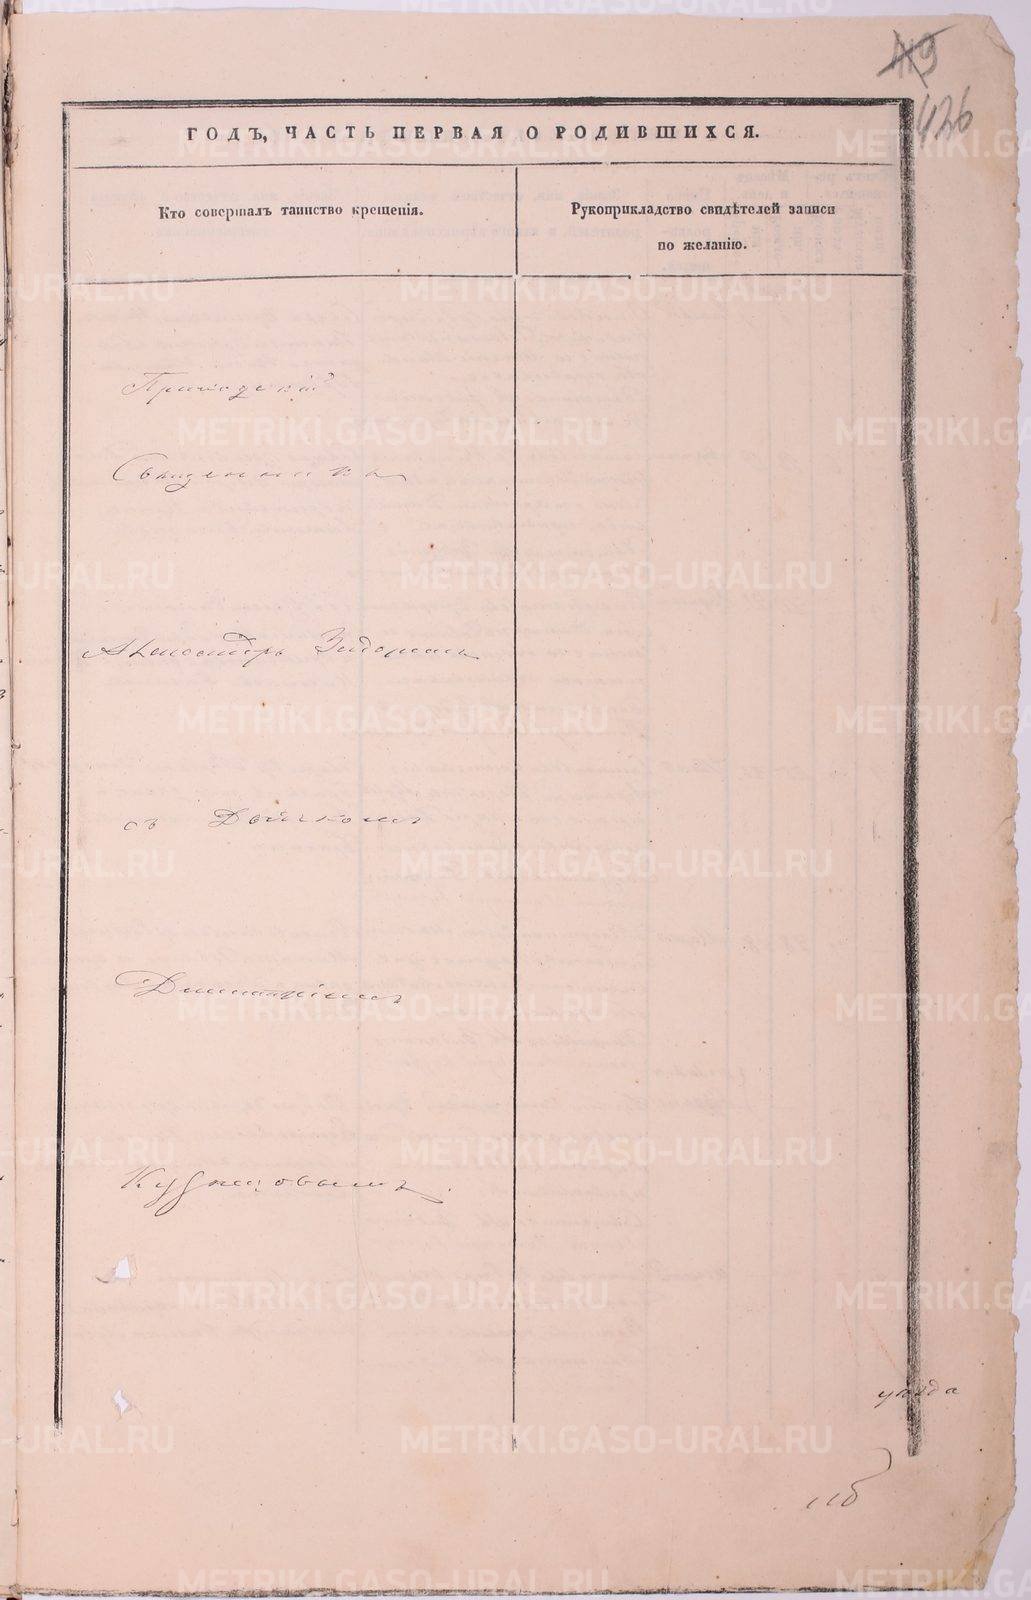 419
426
ГОДЪ, ЧАСТЬ ПЕРВАЯ О РОДИВШИХСЯ.
Кто совершалъ таинство крещенія.
Рукоприкладство свидѣтелей записи
по желанію.
Приходскій
Священникъ
Александръ
съ Дьячкомъ
Димитріемъ
Кузнецовымъ.
уѣзда
METRIKI.GASO-URAL.RU